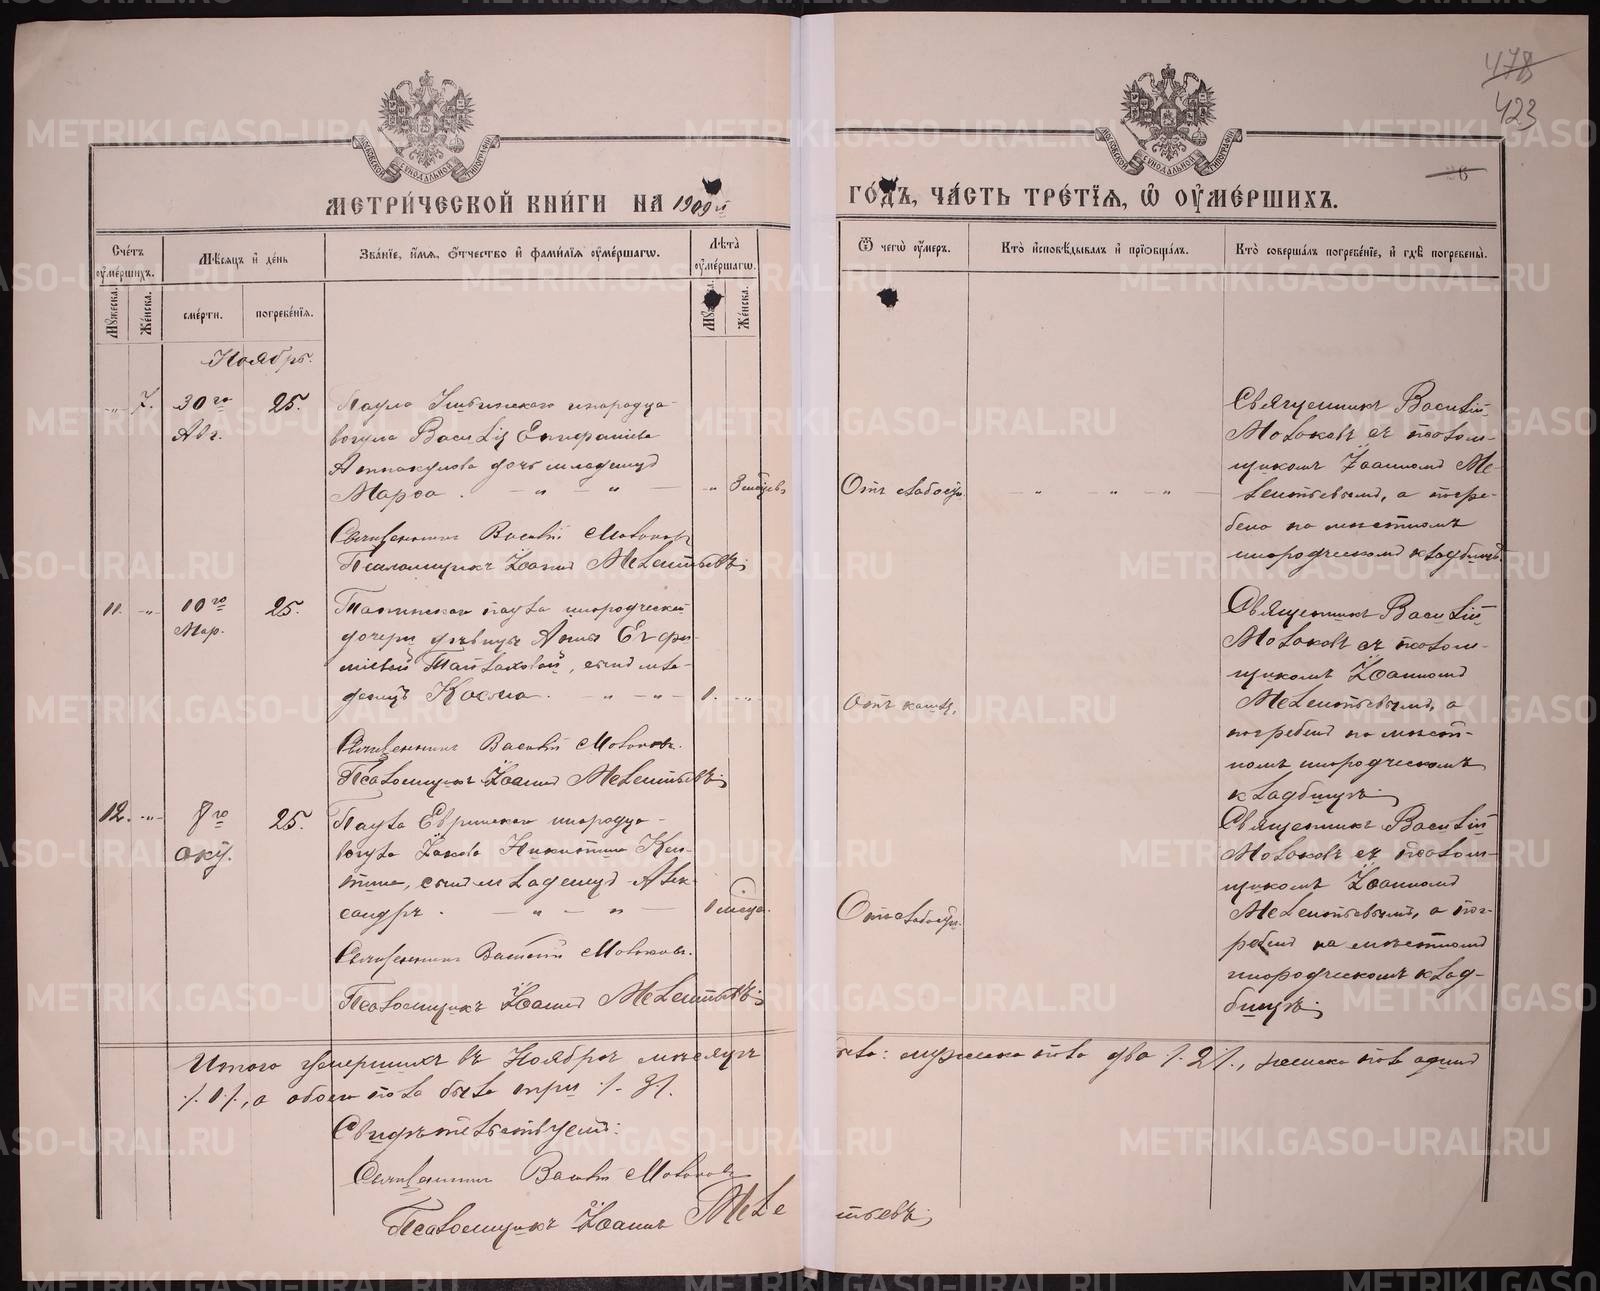 478
423
26
МОСКОВСКОЙ СѴНОДАЛЬНОЙ ТИПОГРАФІИ
МОСКОВСКОЙ СѴНОДАЛЬНОЙ ТИПОГРАФІИ
МЕТРИ́ЧЕСКОЙ КНИ́ГИ НА 1909й ГО́ДЪ, ЧА́СТЬ ТРЕ́ТІЯ, Ѡ ОУМЕ́РШИХЪ.
Сче́тъ оумѐршихъ.
Мꙋ́жеска.
Же́нска.
Мѣ́сяцъ и́ де́нь
сме́рти.
погребе́нїя.
Зва́нїе, и́мя, ѻ́тчество и́ фами́лїя оуме́ршагѡ.
Лѣта̀ оуме́ршагѡ.
Мꙋ́жеска.
Же́нска.
Ѿ чегѡ̀ оу́меръ.
Кто̀ и҆сповѣ́дывалъ и҆ прїѡбща́лъ.
Кто̀ соверша́лъ погребе́нїе, и҆ гдѣ̀ погребены̀.
Ноябрь.
-"- 7. 30го Авг. 25.
Паула инородца-
вогула Василія Епифаніева
дочь младенецъ
Марѳа. - " - " -
" 3 мѣсяцевъ
Отъ слабости.
- " " " -
Священникъ Василій
Молоковъ съ псалом-
щикомъ Іоанномъ Ме-
лентьевымъ, а погре-
бена на мѣстномъ
инородческомъ кладбищѣ.
Священникъ Василій Молоковъ
Псаломщикъ Іоаннъ Мелентьевъ;
11. -"- 10го Мар. 25.
паула инородческой
дочери дѣвицы Анны Евфи-
міевой, сынъ мла-
денецъ Косма. - " - " -
1. -"-
Отъ кашля.
Священникъ Василій
Молоковъ съ псалом-
щикомъ Іоанномъ
Мелентьевымъ, а
погребенъ на мѣст-
номъ инородческомъ
кладбищѣ;
Священникъ Василій Молоковъ.
Псаломщикъ Іоаннъ Мелентьевъ;
12. -"- 8го окт. 25.
Паула инородца-
вогула Іакова Никитина
сынъ младенецъ Алек-
сандръ. - " - " -
1 мѣсяца.
Отъ слабости.
Священникъ Василій
Молоковъ съ псалом-
щикомъ Іоанномъ
Мелентьевымъ, а пог-
ребенъ на мѣстномъ
инородческомъ клад-
бищѣ;
Священникъ Василій Молоковъ.
Псаломщикъ Іоаннъ Мелентьевъ;
Итого умершихъ въ Ноябрѣ мѣсяцѣ было: мужска пола два ·/. 2 /., женска пола одинъ
·/. 1 /., а обоего пола было три ·/. 3 /.
Свидѣтельствуемъ:
Священникъ Василій Молоковъ
Псаломщикъ Іоаннъ Мелентьевъ;
METRIKI.GASO-URAL.RU